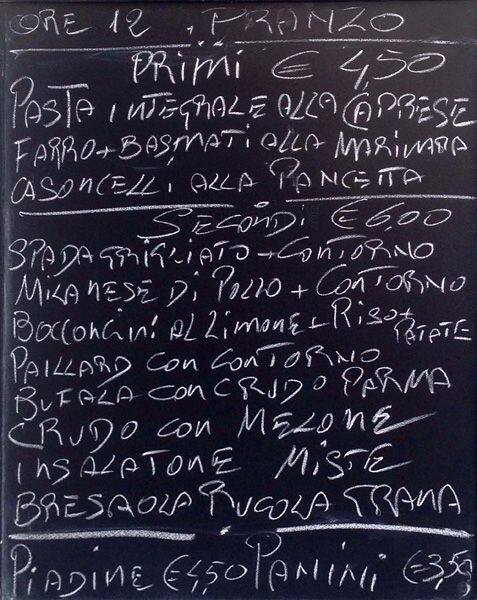 ORE 12, PRANZO
PRIMI € 4,50
PASTA INTEGRALE ALLA CAPRESE
FARRO + BASMATI ALLA MARINARA
CASONCELLI ALLA PANCETTA
SECONDI € 6,00
SPADA GRIGLIATO + CONTORNO
MILANESE DI POLLO + CONTORNO
BOCCONCINI AL LIMONE + RISO + PATATE
PAILLARD CON CONTORNO
BUFALA CON CRUDO PARMA
CRUDO CON MELONE
INSALATONE MISTE
BRESAOLA RUCOLA GRANA
PIADINE € 4,50 PANINI € 3,50